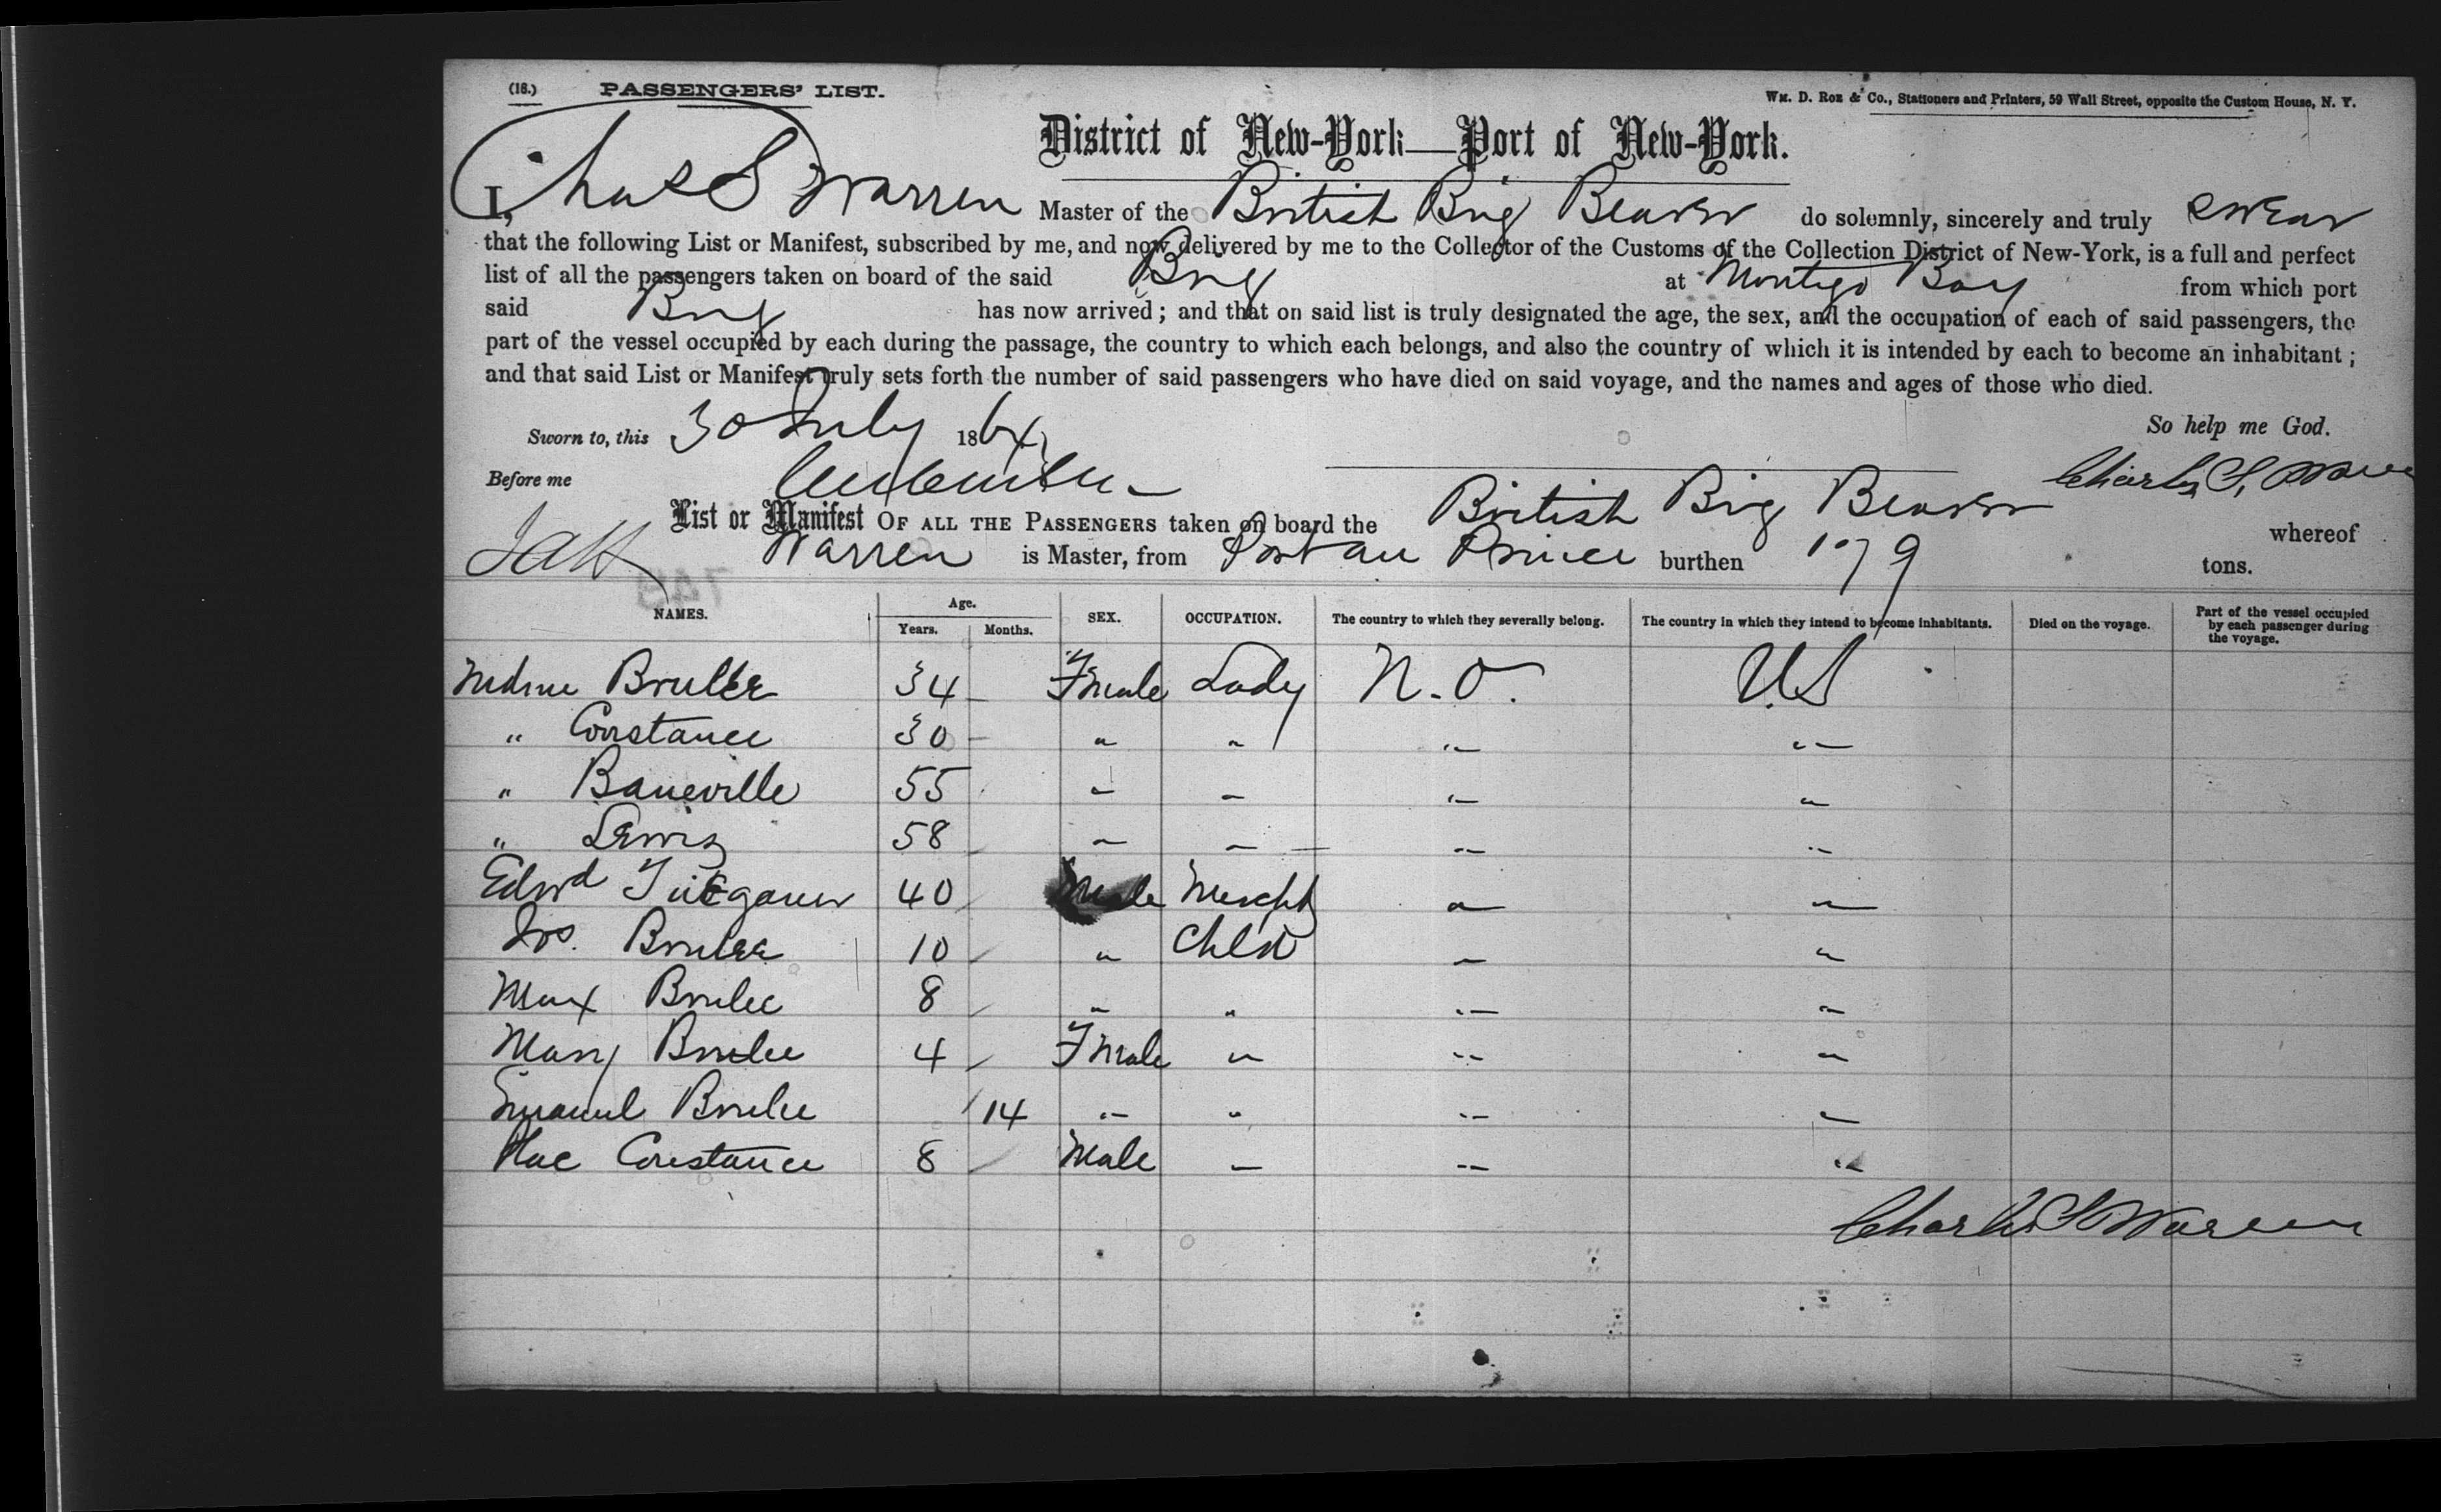 (18.) PASSENGERS' LIST. Wm. D. Roe & Co., Stationers and Printers, 59 Wall Street, opposite the Custom House, N. Y.
District of New-York—Port of New-York.
I, Chas S Warren Master of the British Brig Beaver do solemnly, sincerely and truly swear
that the following List or Manifest, subscribed by me, and now delivered by me to the Collector of the Customs of the Collection District of New-York, is a full and perfect
list of all the passengers taken on board of the said Brig at Montego Bay from which port
said Brig has now arrived; and that on said list is truly designated the age, the sex, and the occupation of each of said passengers, the
part of the vessel occupied by each during the passage, the country to which each belongs, and also the country of which it is intended by each to become an inhabitant;
and that said List or Manifest truly sets forth the number of said passengers who have died on said voyage, and the names and ages of those who died.
Sworn to, this 30 July 1864 So help me God.
Before me Charles S. Warren
List or Manifest OF ALL THE PASSENGERS taken on board the British Brig Beaver whereof
Warren is Master, from Port au Prince burthen 179 tons.
NAMES. Age. Years. Months. SEX. OCCUPATION. The country to which they severally belong. The country in which they intend to become inhabitants. Died on the voyage. Part of the vessel occupied by each passenger during the voyage.
Brulee 34 Female Lady N.O. US
" Constance 30 " " " "
" Baneville 55 " " " "
" Lewis 58 " " " "
Edwd 40 Male Mercht " "
Jos. Brulee 10 " Child " "
Max Brulee 8 " " " "
Mary Brulee 4 Female " " "
Emanuel Brulee 14 " " " "
Constance 8 Male " " "
Charles S Warren